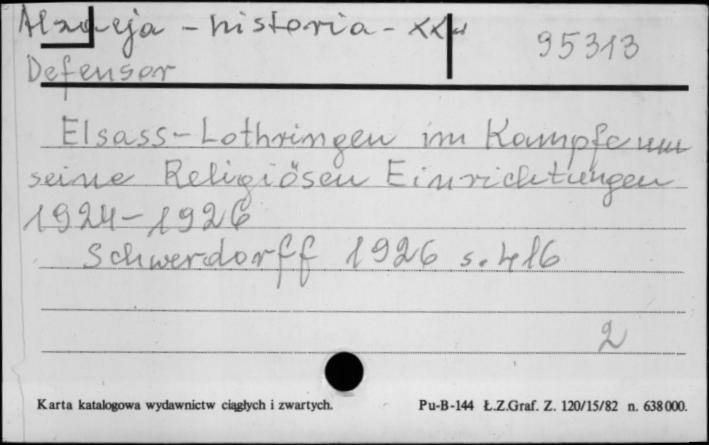 Alzacja - historia - XX w
95313
Defensor
Elsass-Lothringen im Kampfe um
seine Religiösen Einrichtungen
1924-1926
Schwerdorff 1926 s. 416
2
Karta katalogowa wydawnictw ciągłych i zwartych. Pu-B-144 Ł.Z.Graf. Z. 120/15/82 n. 638000.